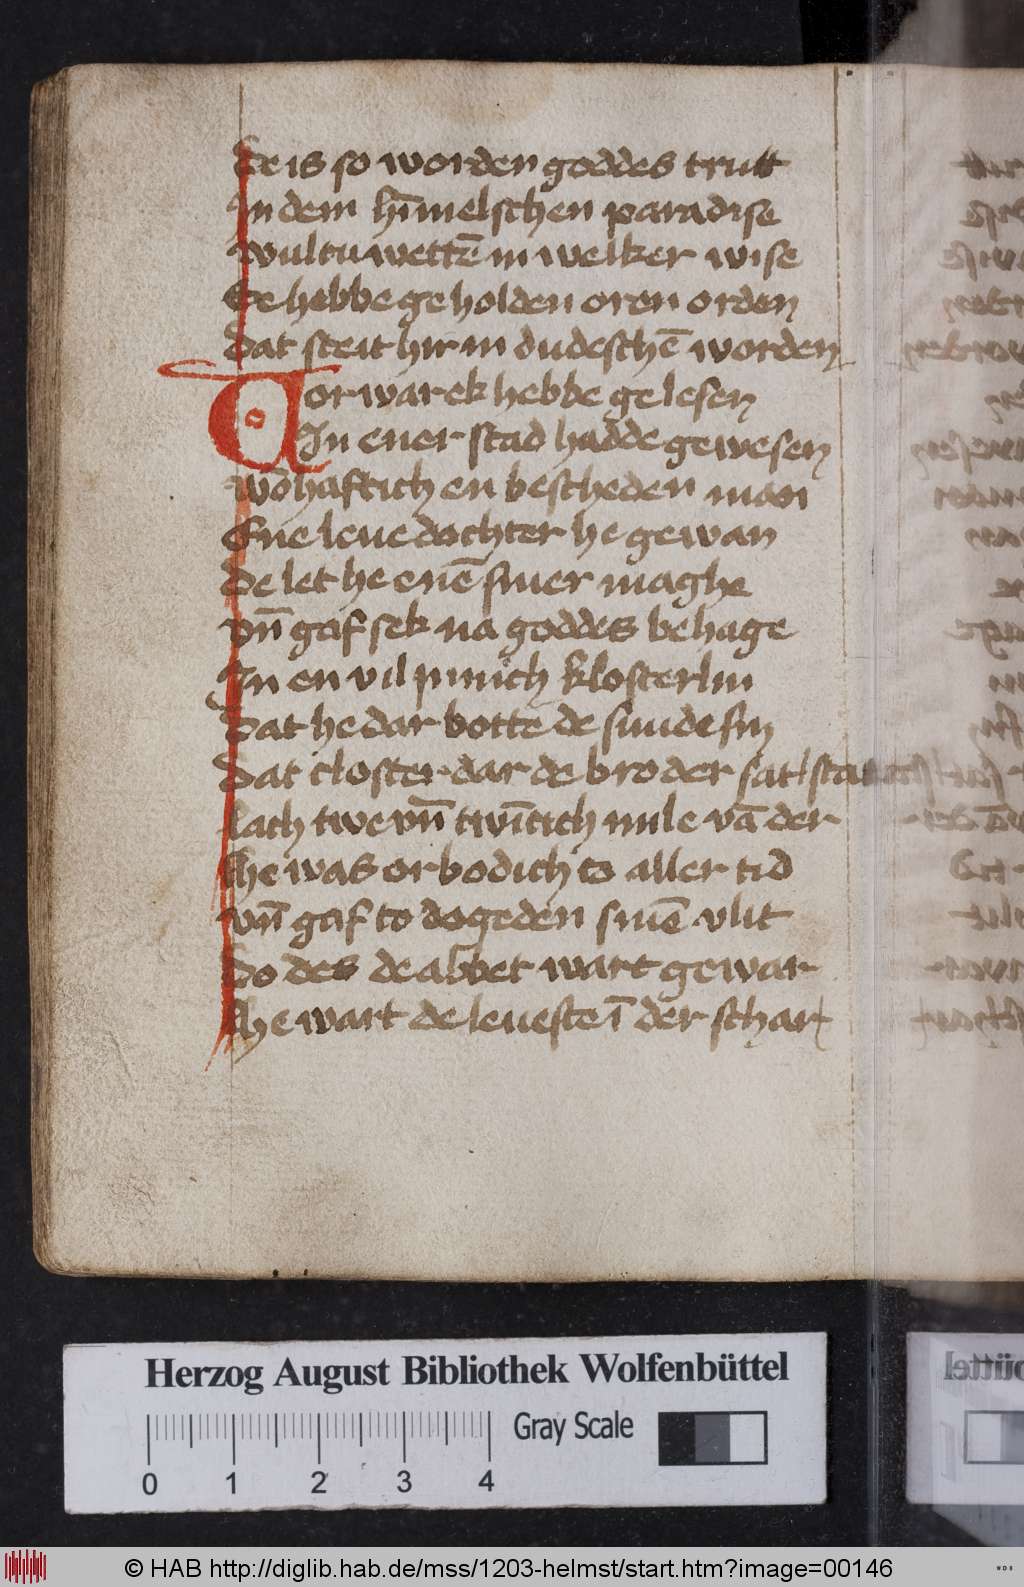 De is so worden goddes trutt
In dem hīmelschen paradise
wultu wettē in welker wise
Se hebbe geholden oren orden
Dat steit hir in dudeschē worden
Vorwar ek hebbe gelesen
In ener stad hadde gewesen
wōhaftich en bescheden man
Ene leue dochter he gewan
De let he enē siner maghe
vn̄ gaf sek na goddes behage
In en vil innich klosterlin
Dat he dar botte de sunde sin
Dat closter dar de broder sat
lach twe vn̄ twītich mile vā der stat
he was orbodich to aller tid
vn̄ gaf to dogeden sinē vlit
Do des de abbet wart gewar
he wart de leueste ī der schar
Herzog August Bibliothek Wolfenbüttel
Gray Scale
0 1 2 3 4
© HAB http://diglib.hab.de/mss/1203-helmst/start.htm?image=00146